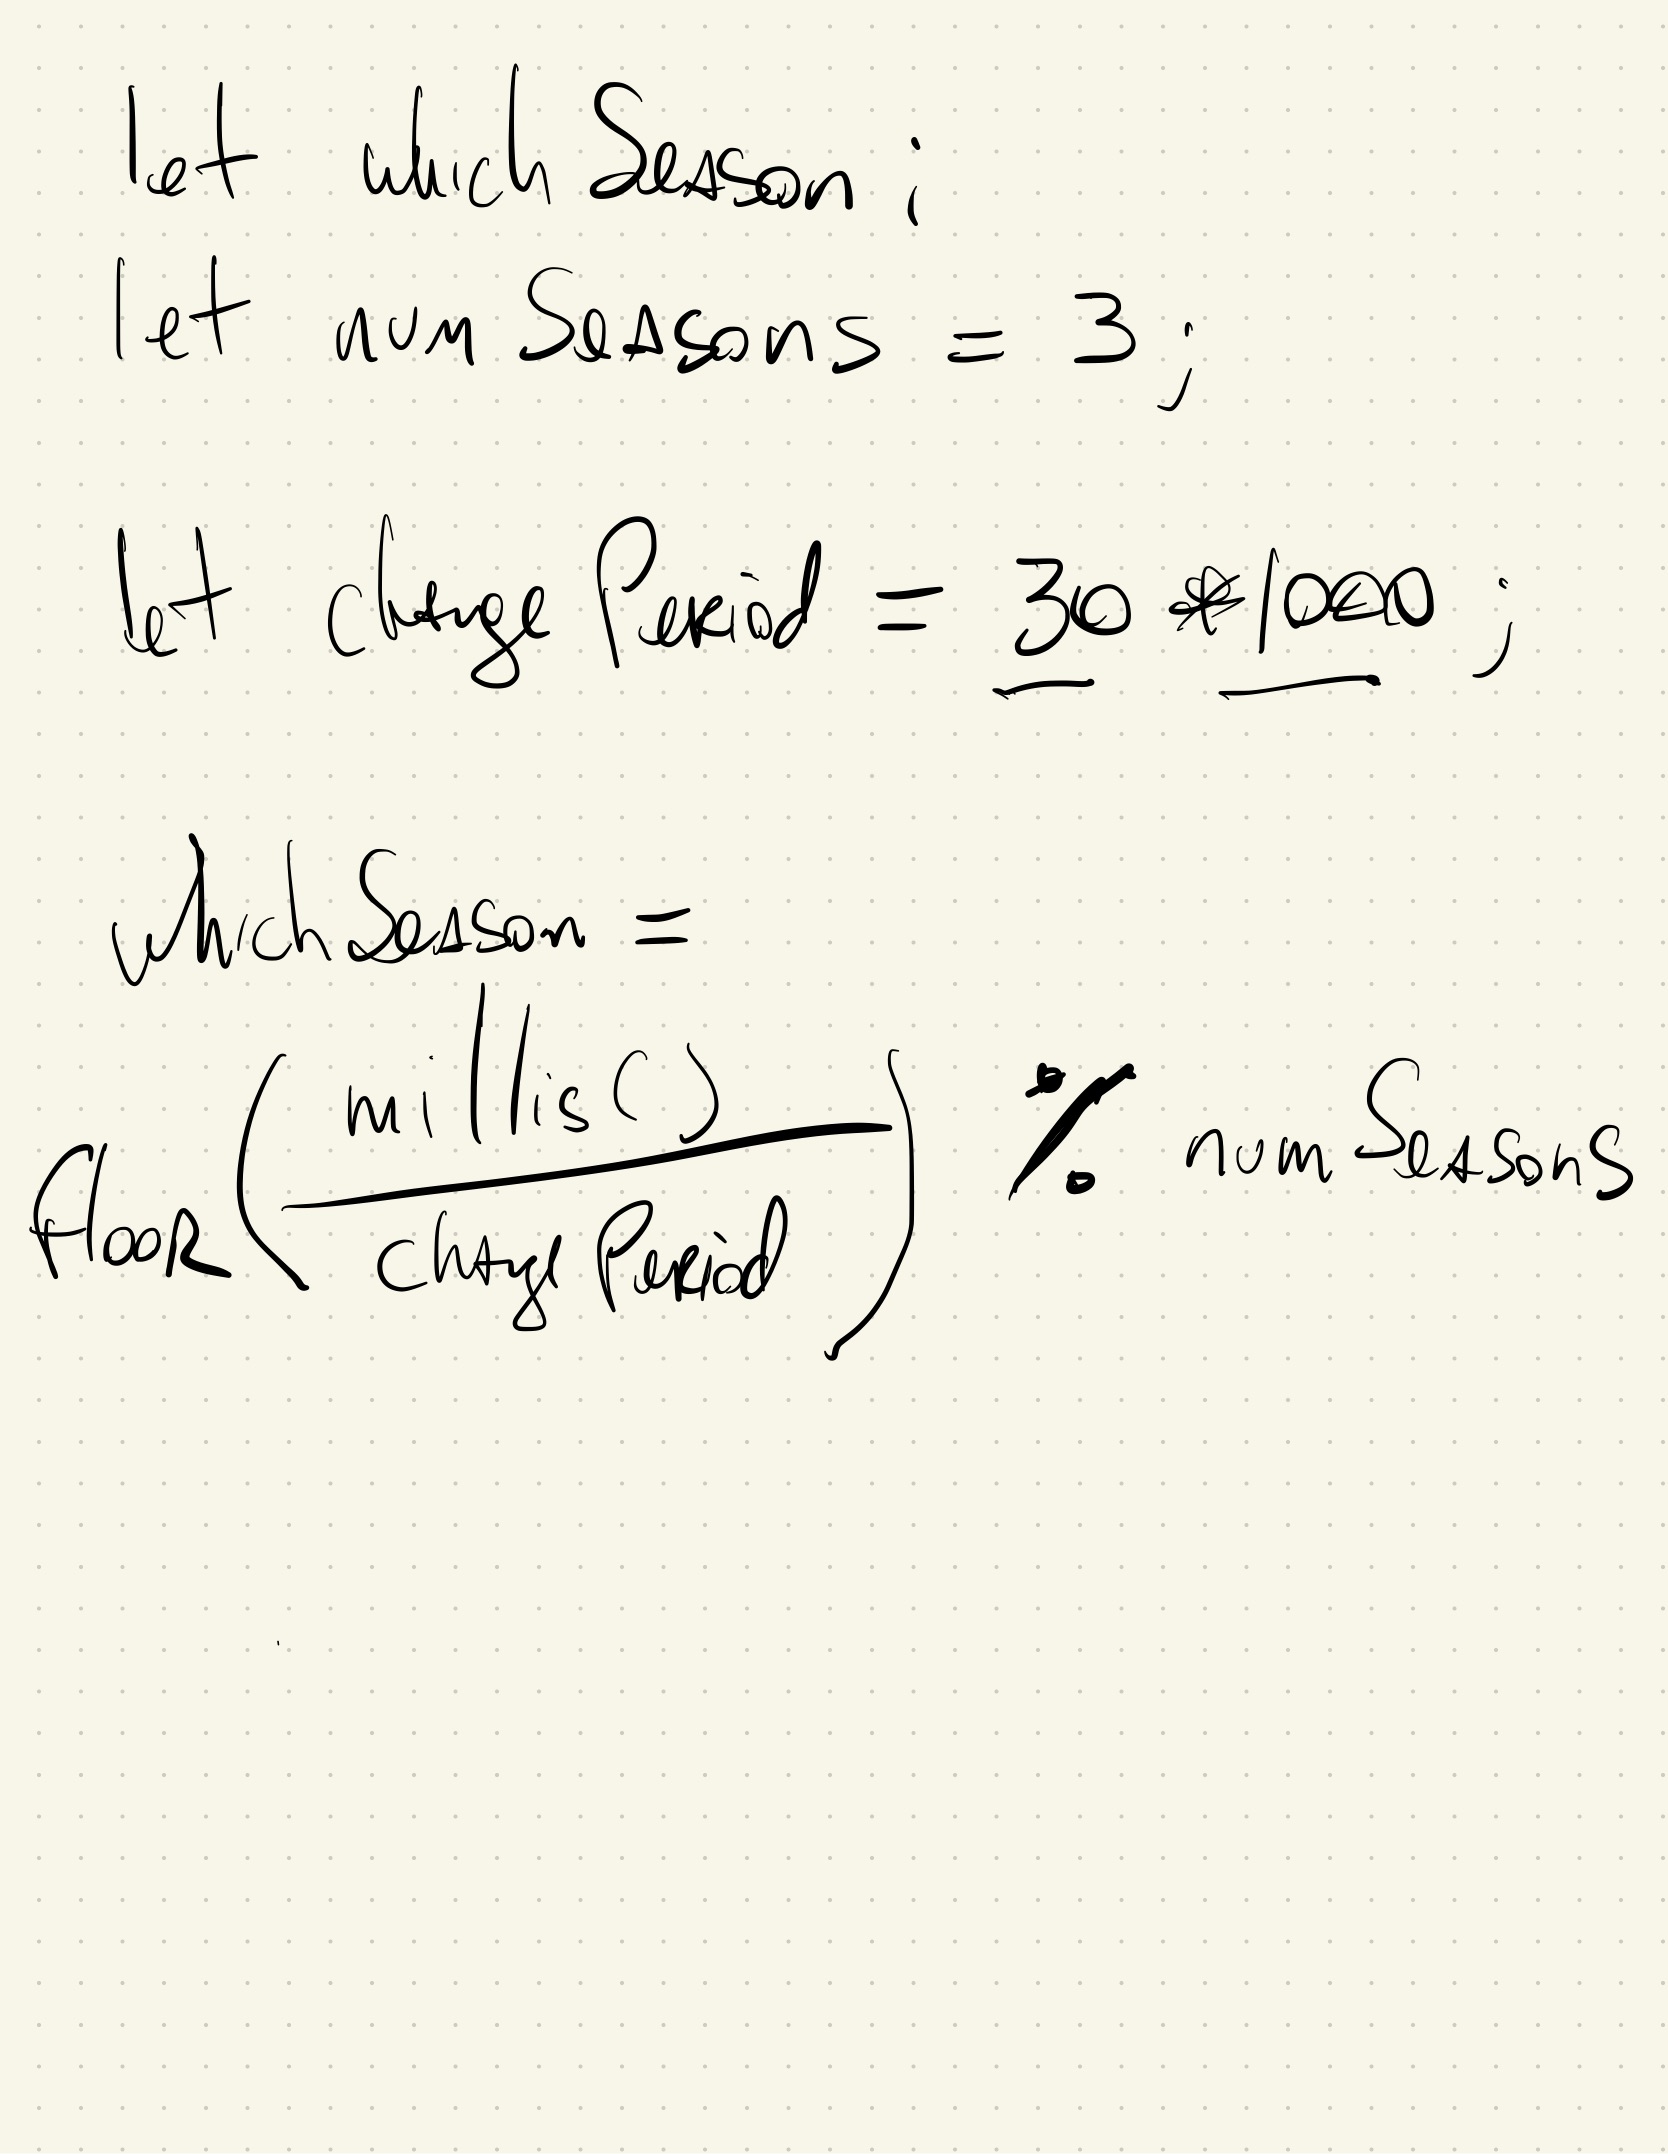 let whichSeason;
let numSeasons = 3;
let changePeriod = 30 * 1000;
whichSeason =
floor( millis() / changePeriod ) % numSeasons